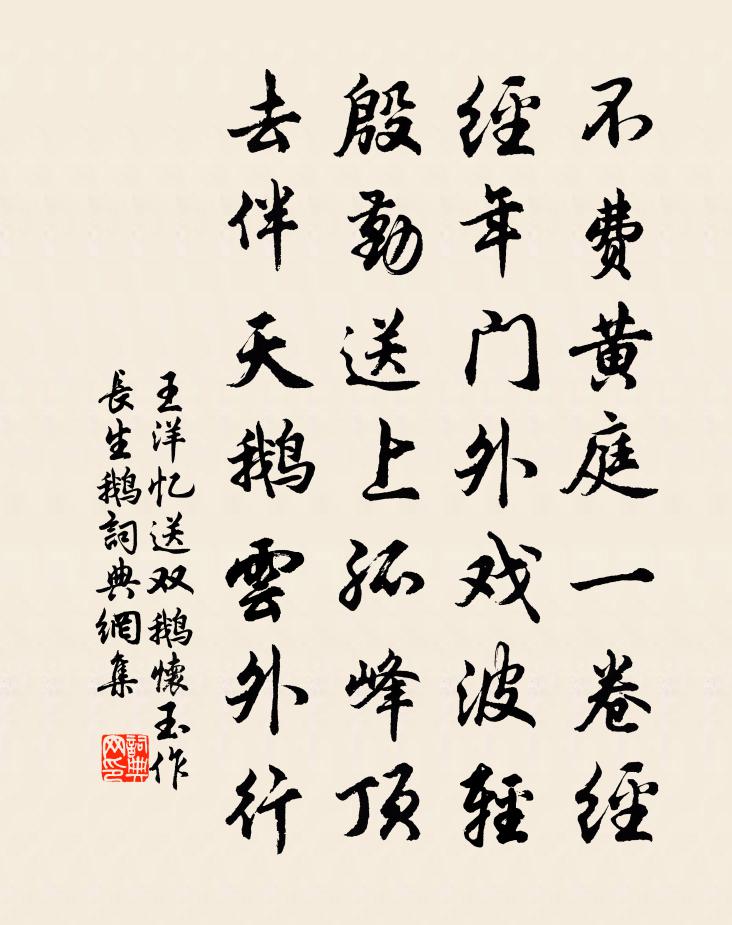 不費黄庭一卷經
經年门外戏波輕
殷勤送上孤峰頂
去伴天鹅雲外行
王洋忆送双鹅懷玉作
長生鹅詞典網集
詞典
网印